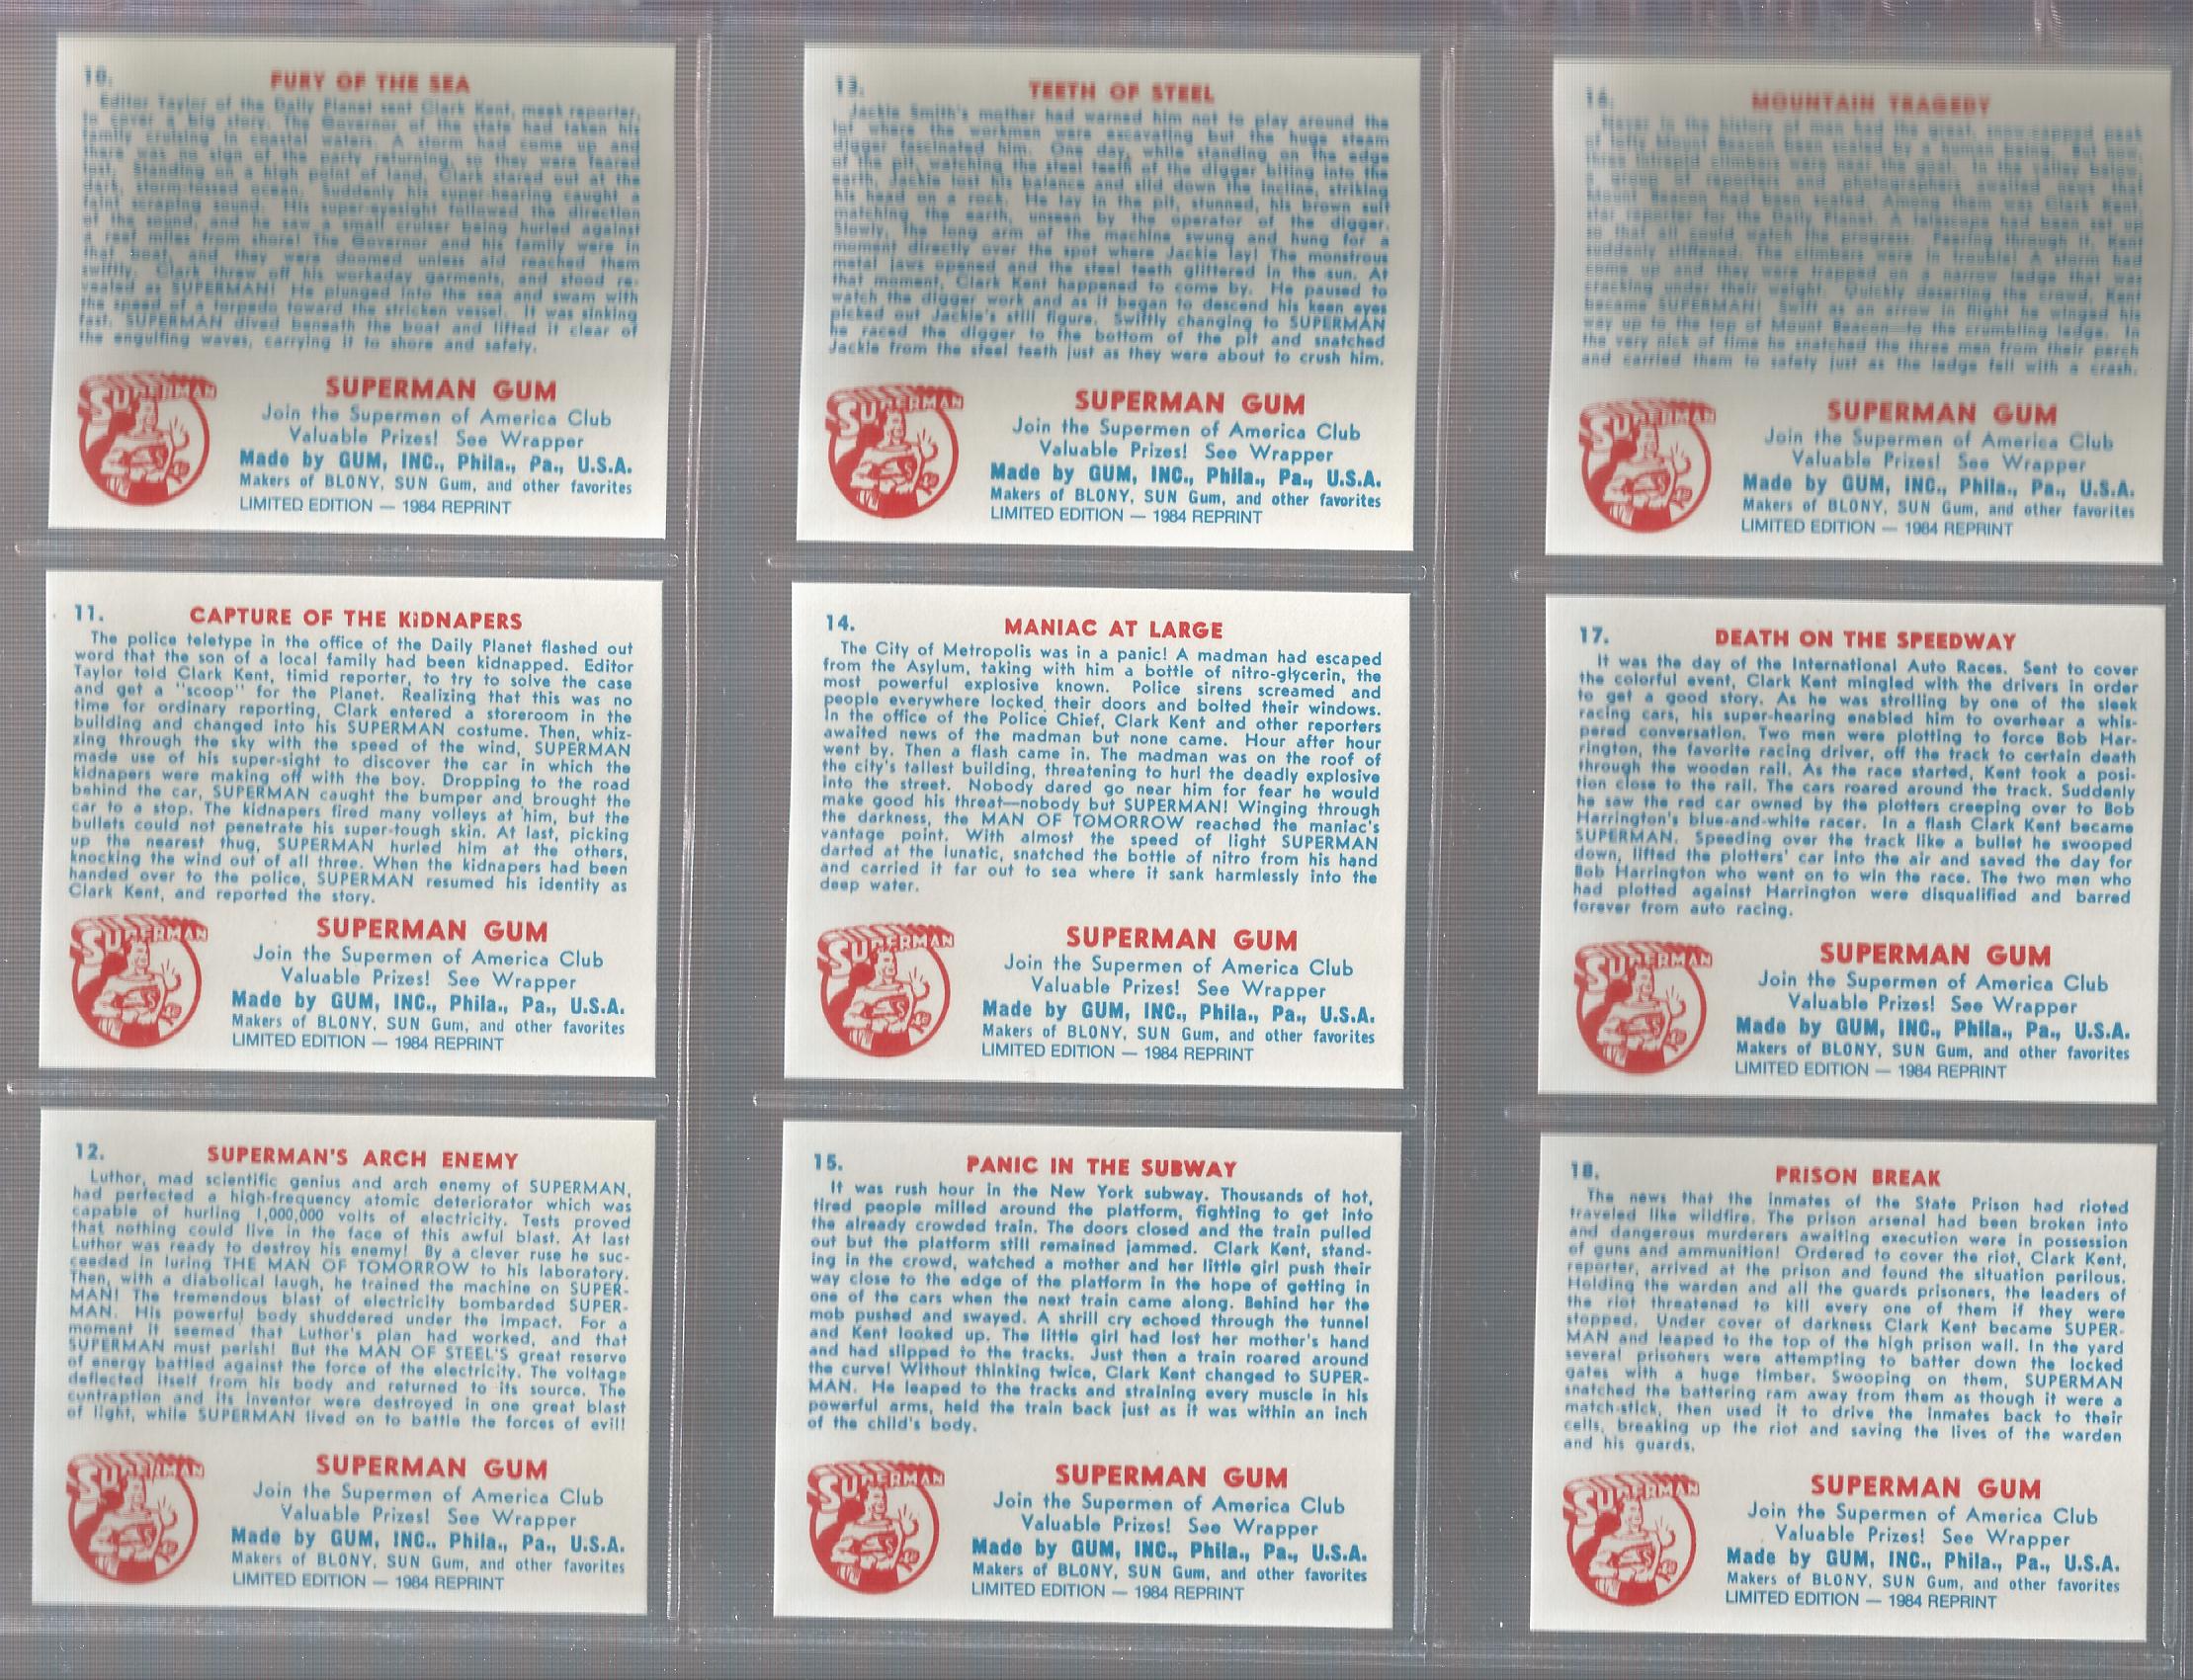 10.
FURY OF THE SEA
Editor Taylor of the Daily Planet sent Clark Kent, meek reporter,
to cover a big story. The Governor of the state had taken his
family cruising in coastal waters. A storm had come up and
there was no sign of the party returning, so they were feared
lost. Standing on a high point of land, Clark stared out at the
dark, storm-tossed ocean. Suddenly his super-hearing caught a
faint scraping sound. His super-eyesight followed the direction
of the sound, and he saw a small cruiser being hurled against
a reef miles from shore! The Governor and his family were in
that boat, and they were doomed unless aid reached them
swiftly. Clark threw off his workaday garments, and stood re-
vealed as SUPERMAN! He plunged into the sea and swam with
the speed of a torpedo toward the stricken vessel. It was sinking
fast. SUPERMAN dived beneath the boat and lifted it clear of
the engulfing waves, carrying it to shore and safety.
SUPERMAN
SUPERMAN GUM
Join the Supermen of America Club
Valuable Prizes! See Wrapper
Made by GUM, INC., Phila., Pa., U.S.A.
Makers of BLONY, SUN Gum, and other favorites
LIMITED EDITION — 1984 REPRINT
11.
CAPTURE OF THE KIDNAPERS
The police teletype in the office of the Daily Planet flashed out
word that the son of a local family had been kidnapped. Editor
Taylor told Clark Kent, timid reporter, to try to solve the case
and get a "scoop" for the Planet. Realizing that this was no
time for ordinary reporting, Clark entered a storeroom in the
building and changed into his SUPERMAN costume. Then, whiz-
zing through the sky with the speed of the wind, SUPERMAN
made use of his super-sight to discover the car in which the
kidnapers were making off with the boy. Dropping to the road
behind the car, SUPERMAN caught the bumper and brought the
car to a stop. The kidnapers fired many volleys at him, but the
bullets could not penetrate his super-tough skin. At last, picking
up the nearest thug, SUPERMAN hurled him at the others,
knocking the wind out of all three. When the kidnapers had been
handed over to the police, SUPERMAN resumed his identity as
Clark Kent, and reported the story.
SUPERMAN
SUPERMAN GUM
Join the Supermen of America Club
Valuable Prizes! See Wrapper
Made by GUM, INC., Phila., Pa., U.S.A.
Makers of BLONY, SUN Gum, and other favorites
LIMITED EDITION — 1984 REPRINT
12.
SUPERMAN'S ARCH ENEMY
Luthor, mad scientific genius and arch enemy of SUPERMAN,
had perfected a high-frequency atomic deteriorator which was
capable of hurling 1,000,000 volts of electricity. Tests proved
that nothing could live in the face of this awful blast. At last
Luthor was ready to destroy his enemy! By a clever ruse he suc-
ceeded in luring THE MAN OF TOMORROW to his laboratory.
Then, with a diabolical laugh, he trained the machine on SUPER-
MAN! The tremendous blast of electricity bombarded SUPER-
MAN. His powerful body shuddered under the impact. For a
moment it seemed that Luthor's plan had worked, and that
SUPERMAN must perish! But the MAN OF STEEL'S great reserve
of energy battled against the force of the electricity. The voltage
deflected itself from his body and returned to its source. The
contraption and its inventor were destroyed in one great blast
of light, while SUPERMAN lived on to battle the forces of evil!
SUPERMAN
SUPERMAN GUM
Join the Supermen of America Club
Valuable Prizes! See Wrapper
Made by GUM, INC., Phila., Pa., U.S.A.
Makers of BLONY, SUN Gum, and other favorites
LIMITED EDITION — 1984 REPRINT
13.
TEETH OF STEEL
Jackie Smith's mother had warned him not to play around the
lot where the workmen were excavating but the huge steam
digger fascinated him. One day, while standing on the edge
of the pit, watching the steel teeth of the digger biting into the
earth, Jackie lost his balance and slid down the incline, striking
his head on a rock. He lay in the pit, stunned, his brown suit
matching the earth, unseen by the operator of the digger.
Slowly, the long arm of the machine swung and hung for a
moment directly over the spot where Jackie lay! The monstrous
metal jaws opened and the steel teeth glittered in the sun. At
that moment, Clark Kent happened to come by. He paused to
watch the digger work and as it began to descend his keen eyes
picked out Jackie's still figure. Swiftly changing to SUPERMAN
he raced the digger to the bottom of the pit and snatched
Jackie from the steel teeth just as they were about to crush him.
SUPERMAN
SUPERMAN GUM
Join the Supermen of America Club
Valuable Prizes! See Wrapper
Made by GUM, INC., Phila., Pa., U.S.A.
Makers of BLONY, SUN Gum, and other favorites
LIMITED EDITION — 1984 REPRINT
14.
MANIAC AT LARGE
The City of Metropolis was in a panic! A madman had escaped
from the Asylum, taking with him a bottle of nitro-glycerin, the
most powerful explosive known. Police sirens screamed and
people everywhere locked their doors and bolted their windows.
In the office of the Police Chief, Clark Kent and other reporters
awaited news of the madman but none came. Hour after hour
went by. Then a flash came in. The madman was on the roof of
the city's tallest building, threatening to hurl the deadly explosive
into the street. Nobody dared go near him for fear he would
make good his threat—nobody but SUPERMAN! Winging through
the darkness, the MAN OF TOMORROW reached the maniac's
vantage point. With almost the speed of light SUPERMAN
darted at the lunatic, snatched the bottle of nitro from his hand
and carried it far out to sea where it sank harmlessly into the
deep water.
SUPERMAN
SUPERMAN GUM
Join the Supermen of America Club
Valuable Prizes! See Wrapper
Made by GUM, INC., Phila., Pa., U.S.A.
Makers of BLONY, SUN Gum, and other favorites
LIMITED EDITION — 1984 REPRINT
15.
PANIC IN THE SUBWAY
It was rush hour in the New York subway. Thousands of hot,
tired people milled around the platform, fighting to get into
the already crowded train. The doors closed and the train pulled
out but the platform still remained jammed. Clark Kent, stand-
ing in the crowd, watched a mother and her little girl push their
way close to the edge of the platform in the hope of getting in
one of the cars when the next train came along. Behind her the
mob pushed and swayed. A shrill cry echoed through the tunnel
and Kent looked up. The little girl had lost her mother's hand
and had slipped to the tracks. Just then a train roared around
the curve! Without thinking twice, Clark Kent changed to SUPER-
MAN. He leaped to the tracks and straining every muscle in his
powerful arms, held the train back just as it was within an inch
of the child's body.
SUPERMAN
SUPERMAN GUM
Join the Supermen of America Club
Valuable Prizes! See Wrapper
Made by GUM, INC., Phila., Pa., U.S.A.
Makers of BLONY, SUN Gum, and other favorites
LIMITED EDITION — 1984 REPRINT
16.
MOUNTAIN TRAGEDY
Never in the history of man had the great, snow-capped peak
of lofty Mount Beacon been scaled by a human being. But now,
three intrepid climbers were near the goal. In the valley below,
a group of reporters and photographers awaited news that
Mount Beacon had been scaled. Among them was Clark Kent,
star reporter for the Daily Planet. A telescope had been set up
so that all could watch the progress. Peering through it, Kent
suddenly stiffened. The climbers were in trouble! A storm had
come up and they were trapped on a narrow ledge that was
cracking under their weight. Quickly deserting the crowd, Kent
became SUPERMAN! Swift as an arrow in flight he winged his
way up to the top of Mount Beacon—to the crumbling ledge. In
the very nick of time he snatched the three men from their perch
and carried them to safety just as the ledge fell with a crash.
SUPERMAN
SUPERMAN GUM
Join the Supermen of America Club
Valuable Prizes! See Wrapper
Made by GUM, INC., Phila., Pa., U.S.A.
Makers of BLONY, SUN Gum, and other favorites
LIMITED EDITION — 1984 REPRINT
17.
DEATH ON THE SPEEDWAY
It was the day of the International Auto Races. Sent to cover
the colorful event, Clark Kent mingled with the drivers in order
to get a good story. As he was strolling by one of the sleek
racing cars, his super-hearing enabled him to overhear a whis-
pered conversation. Two men were plotting to force Bob Har-
rington, the favorite racing driver, off the track to certain death
through the wooden rail. As the race started, Kent took a posi-
tion close to the rail. The cars roared around the track. Suddenly
he saw the red car owned by the plotters creeping over to Bob
Harrington's blue-and-white racer. In a flash Clark Kent became
SUPERMAN. Speeding over the track like a bullet he swooped
down, lifted the plotters' car into the air and saved the day for
Bob Harrington who went on to win the race. The two men who
had plotted against Harrington were disqualified and barred
forever from auto racing.
SUPERMAN
SUPERMAN GUM
Join the Supermen of America Club
Valuable Prizes! See Wrapper
Made by GUM, INC., Phila., Pa., U.S.A.
Makers of BLONY, SUN Gum, and other favorites
LIMITED EDITION — 1984 REPRINT
18.
PRISON BREAK
The news that the inmates of the State Prison had rioted
traveled like wildfire. The prison arsenal had been broken into
and dangerous murderers awaiting execution were in possession
of guns and ammunition! Ordered to cover the riot, Clark Kent,
reporter, arrived at the prison and found the situation perilous.
Holding the warden and all the guards prisoners, the leaders of
the riot threatened to kill every one of them if they were
stopped. Under cover of darkness Clark Kent became SUPER-
MAN and leaped to the top of the high prison wall. In the yard
several prisoners were attempting to batter down the locked
gates with a huge timber. Swooping on them, SUPERMAN
snatched the battering ram away from them as though it were a
match-stick, then used it to drive the inmates back to their
cells, breaking up the riot and saving the lives of the warden
and his guards.
SUPERMAN
SUPERMAN GUM
Join the Supermen of America Club
Valuable Prizes! See Wrapper
Made by GUM, INC., Phila., Pa., U.S.A.
Makers of BLONY, SUN Gum, and other favorites
LIMITED EDITION — 1984 REPRINT